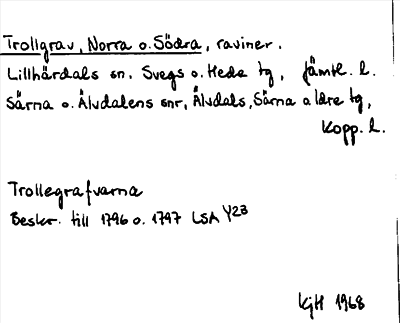 Trollgrav, Norra o. Södra, raviner.
Lillhärdals sn. Svegs o. Hede tg, Jämtl. l.
Särna o. Älvdalens snr, Älvdals, Särna o Idre tg,
Kopp. l.
Trollegrafvarna
Beskr. till 1796 o. 1797 LSA Y23
KjH 1968